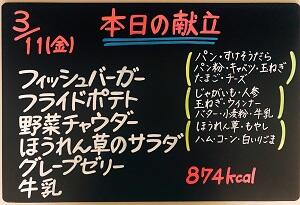 3/11(金)
本日の献立
フィッシュバーガー
フライドポテト
野菜チャウダー
ほうれん草のサラダ
グレープゼリー
牛乳
パン・すけそうだら
パン粉・キャベツ・玉ねぎ
たまご・チーズ
じゃがいも・人参
玉ねぎ・ウィンナー
バター・小麦粉・牛乳
ほうれん草・もやし
ハム・コーン・白いりごま
874kcal